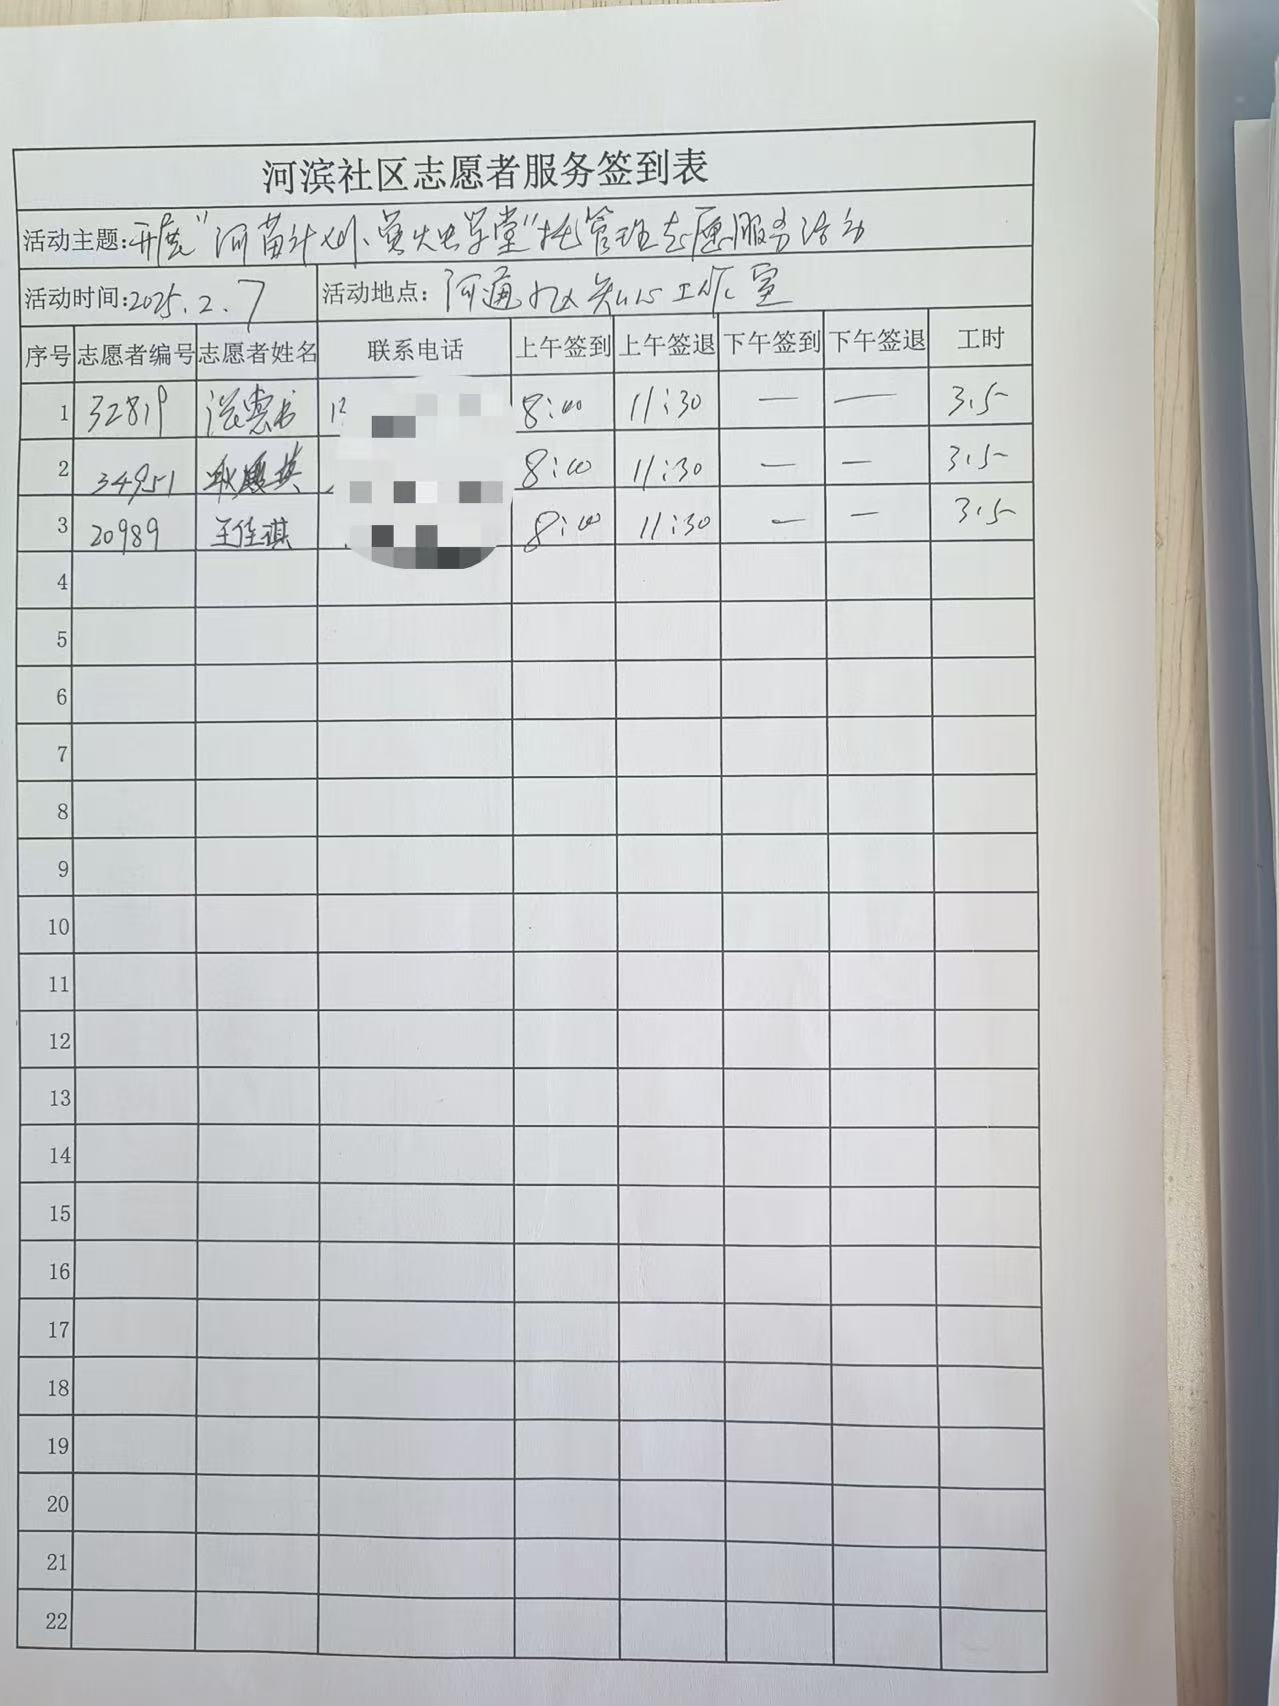 河滨社区志愿者服务签到表
活动主题:开展"河苗计划、萤火虫学堂"托管理志愿服务活动
活动时间:2025.2.7 活动地点: 河通 工作室
序号 志愿者编号 志愿者姓名 联系电话 上午签到 上午签退 下午签到 下午签退 工时
1 32819 8:00 11:30 — — 3.5
2 34951 8:00 11:30 — — 3.5
3 20989 王佳琪 8:00 11:30 — — 3.5
4
5
6
7
8
9
10
11
12
13
14
15
16
17
18
19
20
21
22